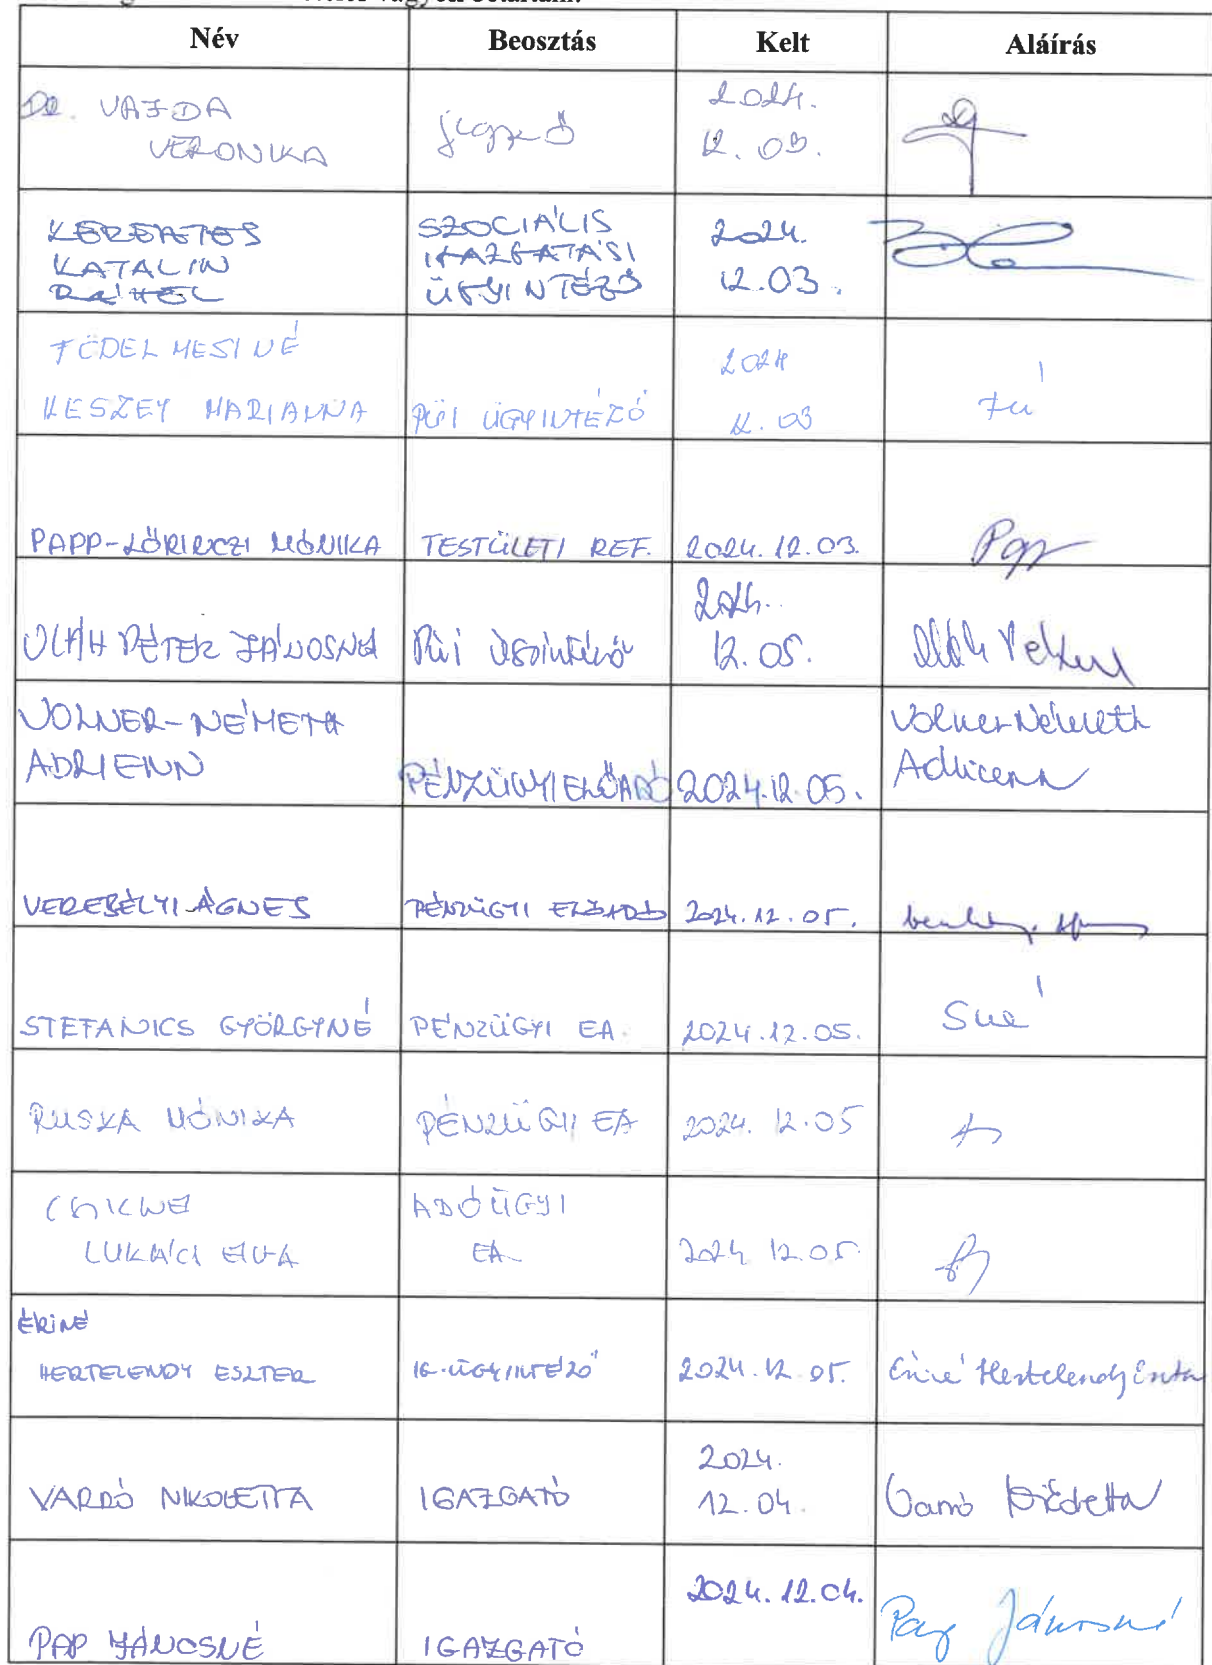 Név Beosztás Kelt Aláírás
DR. VAJDA
VERONIKA
jegyző
2024.
12. 03.
KERTATOS
KATALIN
RÁHEL
SZOCIÁLIS
IGAZGATÁSI
ÜGYINTÉZŐ
2024.
12.03.
TÖDEL MESINÉ
KESZEY MARIANNA
PÜI ÜGYINTÉZŐ
2024
12. 03
PAPP-LŐRINCZI MÓNIKA TESTÜLETI REF. 2024.12.03. Papp
OLÁH PÉTER JÁNOSNÉ
Püi ügyintéző
2024.
12.05.
Oláh Péter
VOLNER-NÉMETH
ADRIENN
PÉNZÜGYI ELŐADÓ 2024.12.05.
Volner-Németh
Adrienn
VEREBÉLYI ÁGNES PÉNZÜGYI ELŐADÓ 2024.12.05.
STEFANICS GYÖRGYNÉ PÉNZÜGYI EA. 2024.12.05. Sné
RUSKA MÓNIKA PÉNZÜGYI EA 2024. 12.05
LUKÁCS ÉVA
ADÓÜGYI
EA.
2024 12.05.
ÉRINÉ
HERTELENDY ESZTER IG. ÜGYINTÉZŐ 2024.12.05. Ériné Hertelendy Eszter
VARRÓ NIKOLETTA IGAZGATÓ
2024.
12.04.
Varró Nikoletta
PAP JÁNOSNÉ IGAZGATÓ 2024.12.04. Pap Jánosné